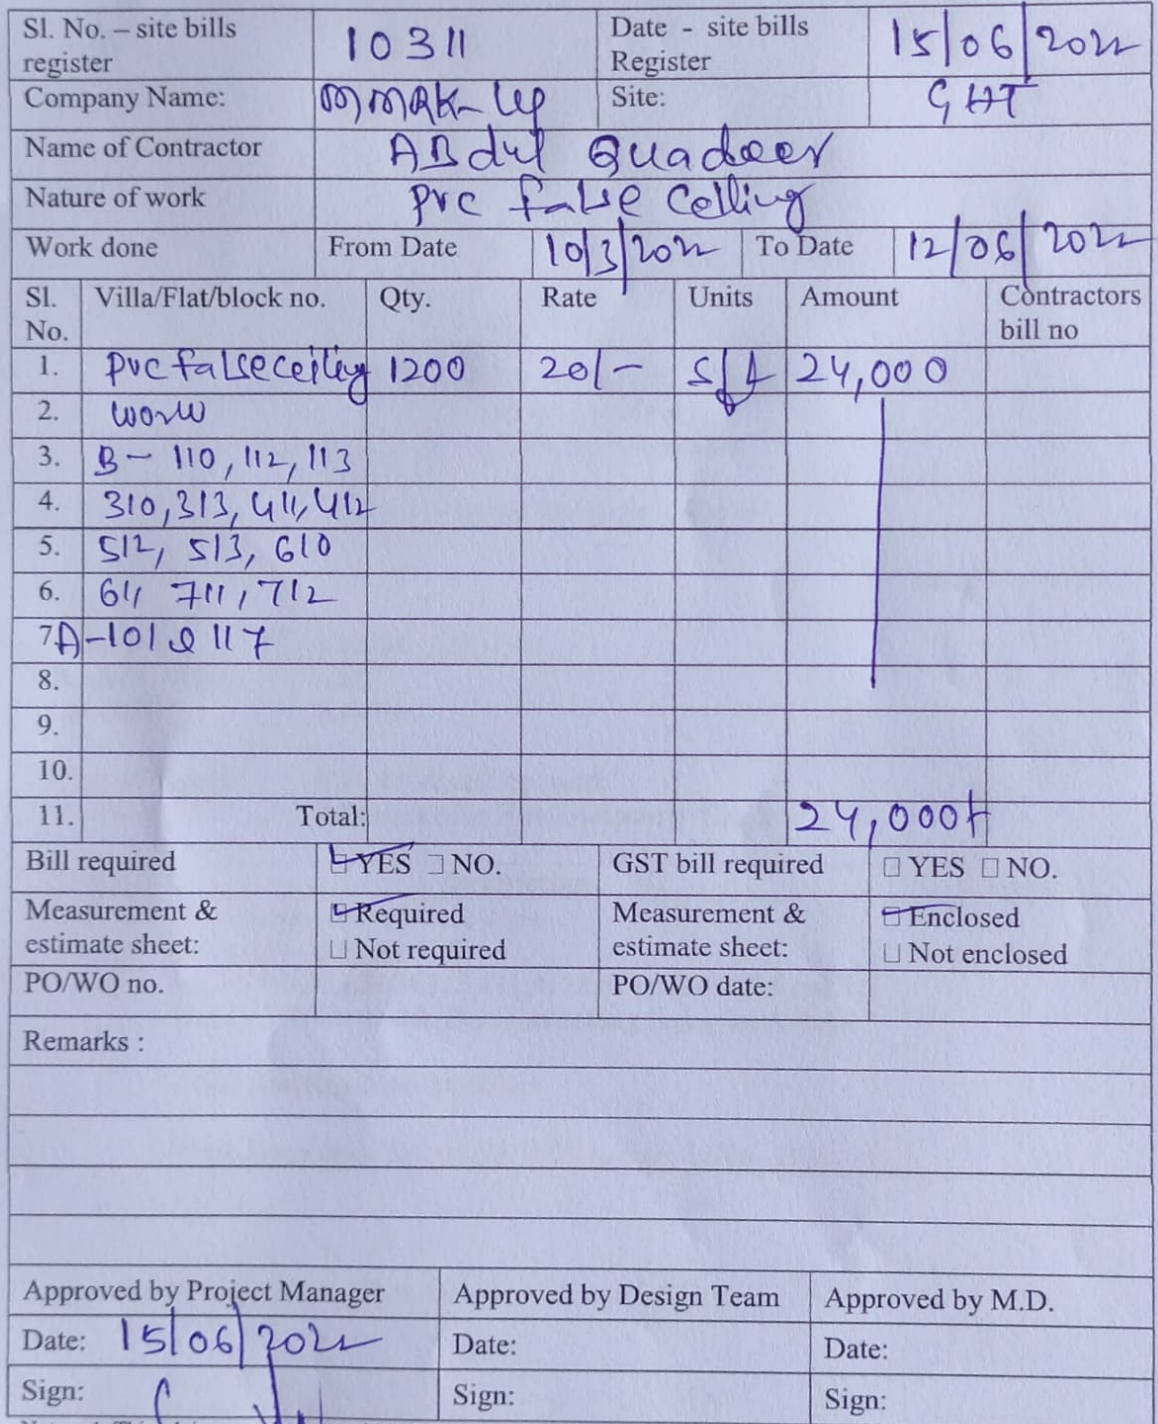 Sl. No. – site bills register 10311 Date - site bills Register 15/06/2022
Company Name: Site: GHT
Name of Contractor ABdul Quadeer
Nature of work Pvc false Celling
Work done From Date 10/3/2022 To Date 12/06/2022
Sl. No. Villa/Flat/block no. Qty. Rate Units Amount Contractors bill no
1. Pvc false ceiling 1200 20/- sft 24,000
2. work
3. B- 110, 112, 113
4. 310, 313, 411, 412
5. 512, 513, 610
6. 611 711, 712
7. A-101 & 117
8.
9.
10.
11. Total: 24,000/-
Bill required YES NO. GST bill required YES NO.
Measurement & estimate sheet: Required Not required Measurement & estimate sheet: Enclosed Not enclosed
PO/WO no. PO/WO date:
Remarks :
Approved by Project Manager Approved by Design Team Approved by M.D.
Date: 15/06/2022 Date: Date:
Sign: Sign: Sign: